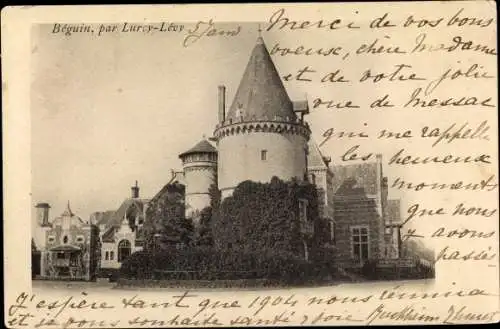 Béguin, par Lurcy-Lévy
5 Jan
Merci de vos bons
voeuse, chère Madame
et de votre jolie
vue de Messac
qui me rappelle
les heureux
moment
que nous
y avons
passés
J'espère tant que 1904 nous réunira
et je vous souhaite santé